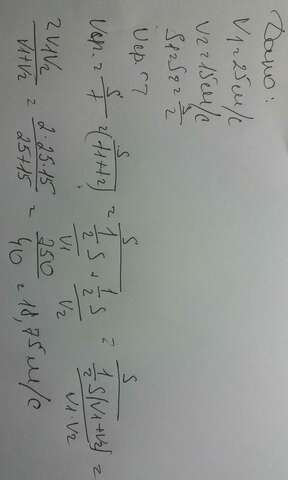 Дано:
V1 = 25 см/с
V2 = 15 см/с
S1 = S2 = S/2
Vср ?
Vср. = S/t = S/(t1+t2) = S/(1/2 S/V1 + 1/2 S/V2) = S/(1/2 S(V1+V2)/V1·V2) =
2V1V2/V1+V2 = 2·25·15/25+15 = 250/40 = 18,75 см/с